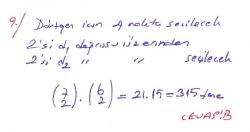 9./ Dörtgen için 4 nokta seçilecek
2'si d₁ doğrusu üzerinden
2'si d₂ " " seçilecek
(7 2).(6 2) = 21.15 = 315 tane
CEVAP:B